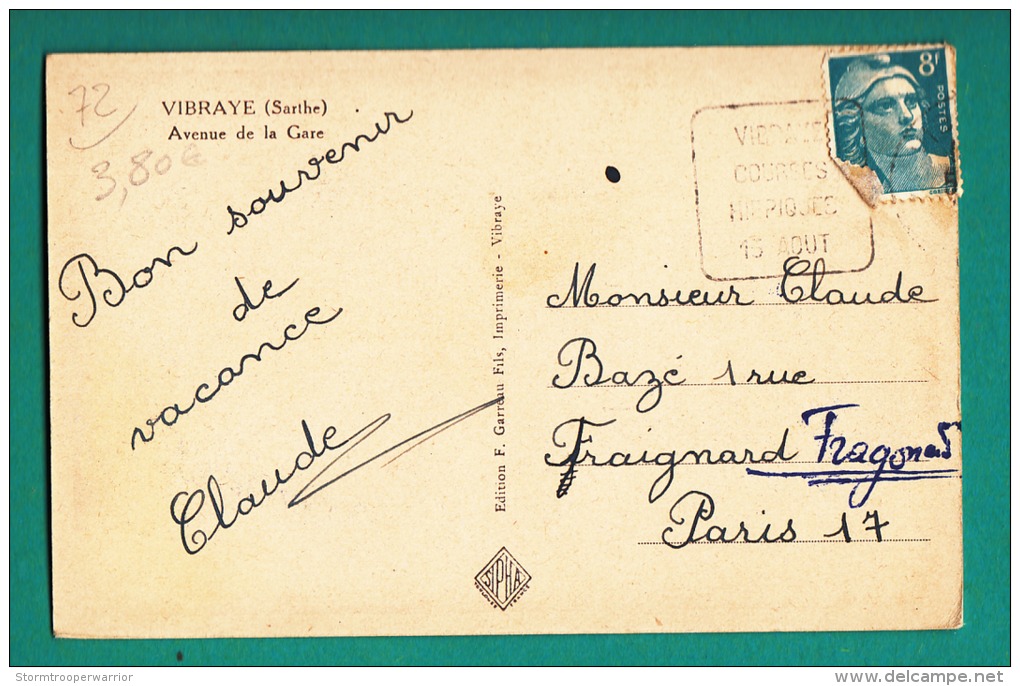 72
VIBRAYE (Sarthe)
Avenue de la Gare
3,80€
Bon souvenir
de
vacance
Claude
Edition F. Garreau Fils, Imprimerie - Vibraye
SIPHA
8F
POSTES
VIBRAYE
COURSES
HIPPIQUES
15 AOUT
Monsieur Claude
Bazé 1 rue
Fraignard Fragonard
Paris 17
Stormtrooperwarrior
delcampe.net